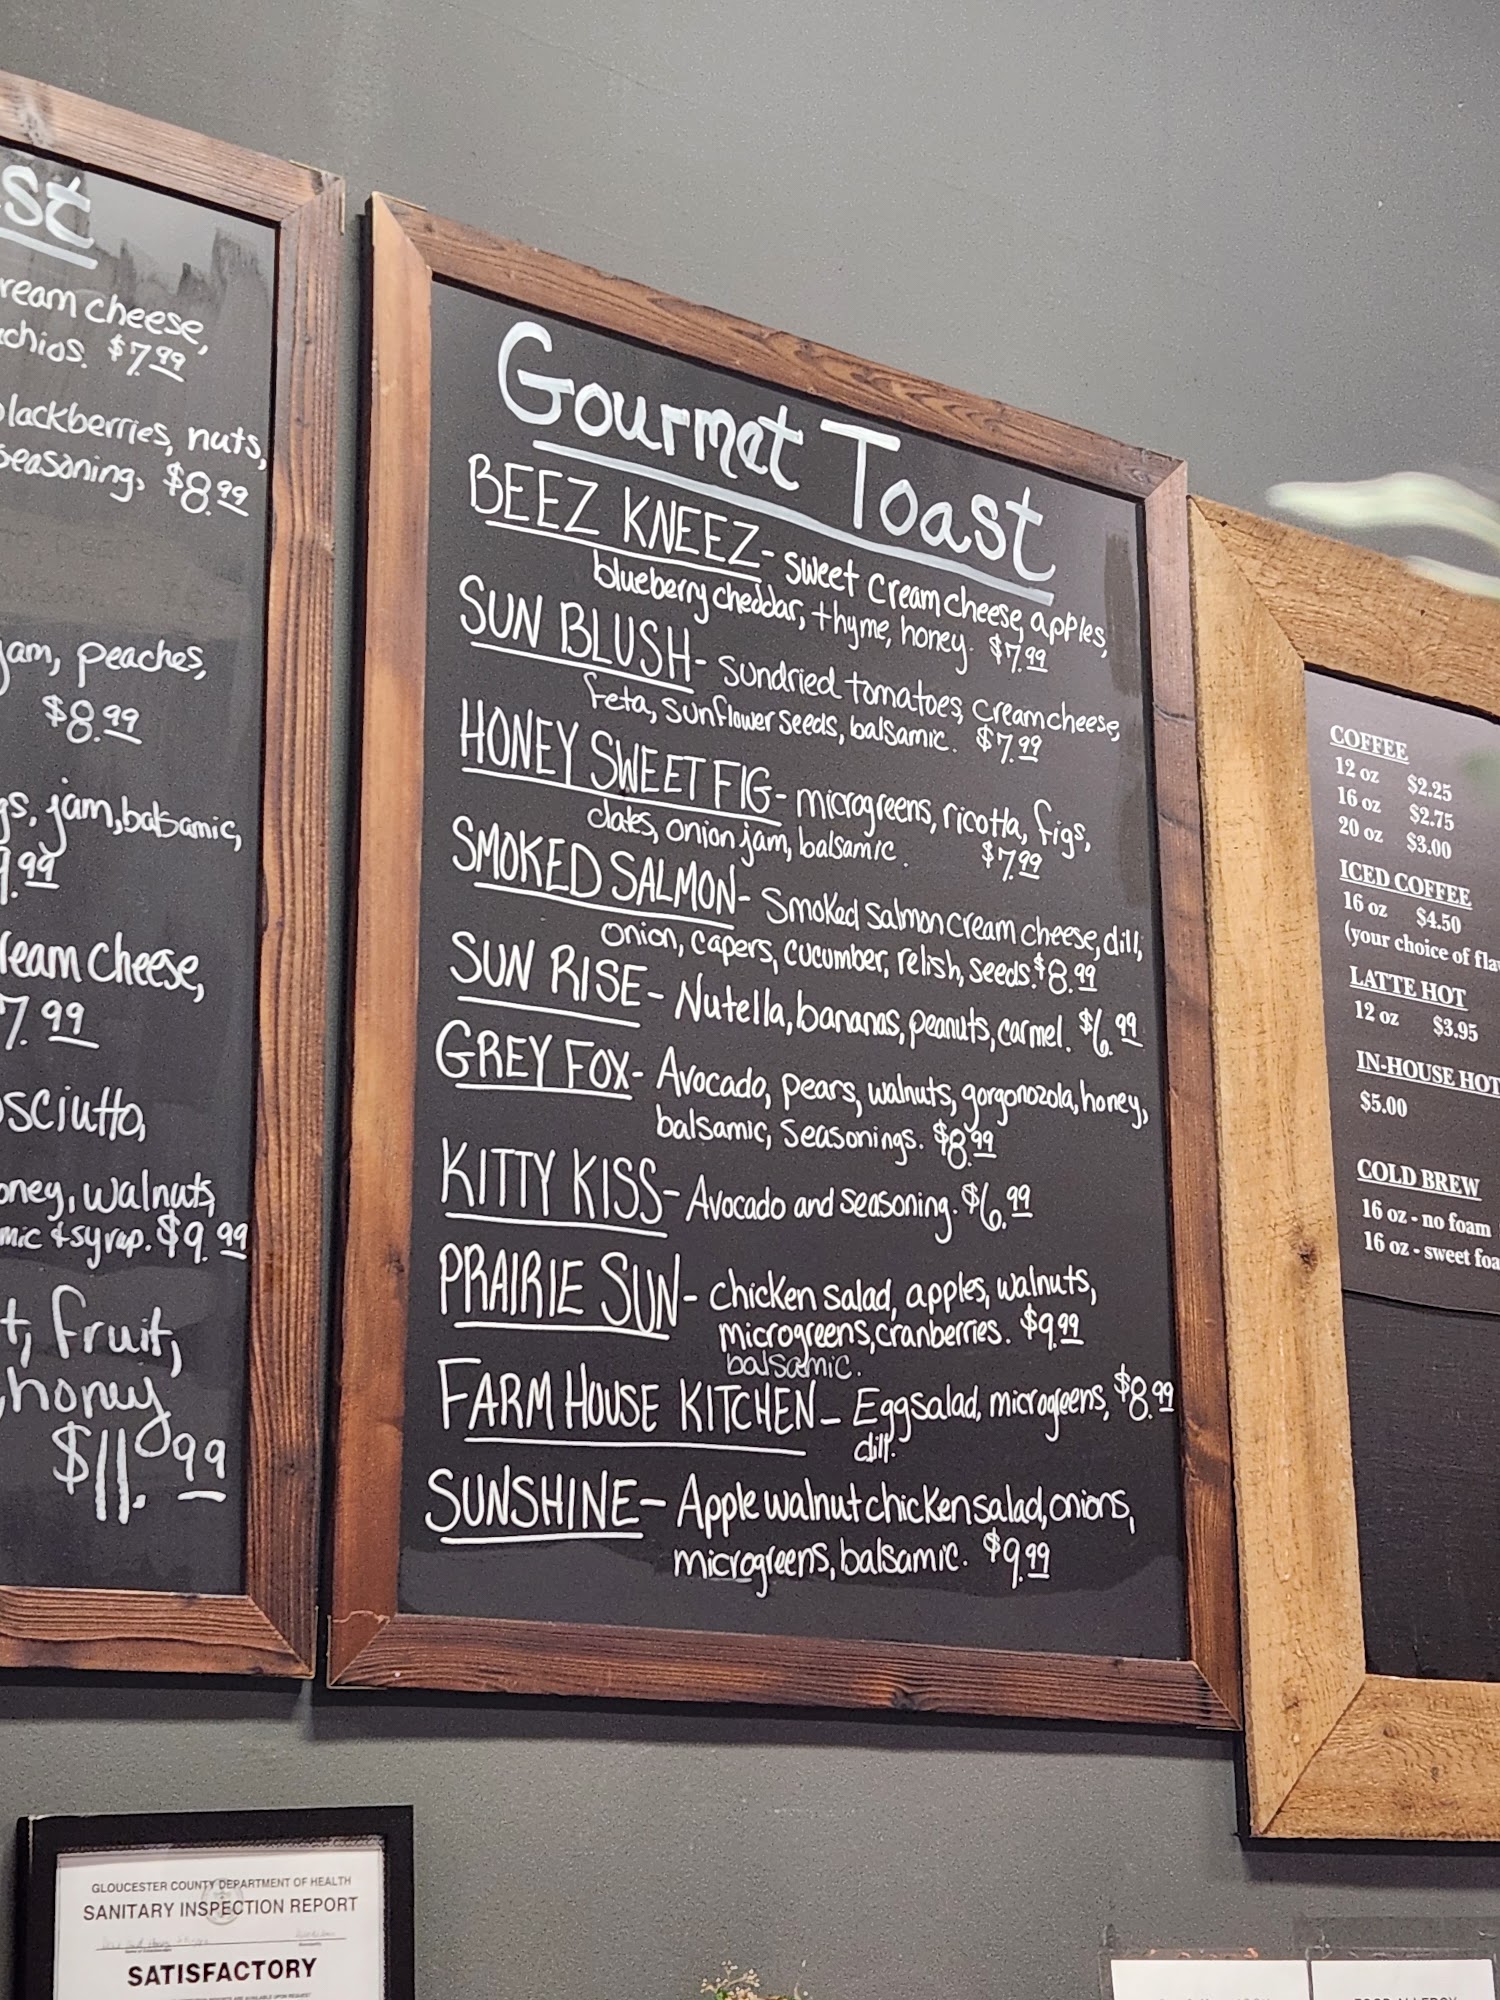 st
ream cheese,
chios. $7.99
blackberries, nuts,
seasoning, $8.99
jam, peaches,
$8.99
gs, jam, balsamic,
9.99
ream cheese,
7.99
osciutto,
oney, walnuts,
mic & syrup. $9.99
t, fruit,
honey
$11.99
Gourmet Toast
BEEZ KNEEZ- sweet cream cheese, apples,
blueberry cheddar, thyme, honey. $7.99
SUN BLUSH- sundried tomatoes, cream cheese,
feta, sunflower seeds, balsamic. $7.99
HONEY SWEET FIG- microgreens, ricotta, figs,
dates, onion jam, balsamic. $7.99
SMOKED SALMON- Smoked salmon cream cheese, dill,
onion, capers, cucumber, relish, seeds. $8.99
SUN RISE- Nutella, bananas, peanuts, carmel. $6.99
GREY FOX- Avocado, pears, walnuts, gorgonozola, honey,
balsamic, seasonings. $8.99
KITTY KISS- Avocado and seasoning. $6.99
PRAIRIE SUN- chicken salad, apples, walnuts,
microgreens, cranberries. $9.99
balsamic.
FARM HOUSE KITCHEN- Egg salad, microgreens, $8.99
dill.
SUNSHINE- Apple walnut chicken salad, onions,
microgreens, balsamic. $9.99
COFFEE
12 oz $2.25
16 oz $2.75
20 oz $3.00
ICED COFFEE
16 oz $4.50
(your choice of fla
LATTE HOT
12 oz $3.95
IN-HOUSE HOT
$5.00
COLD BREW
16 oz - no foam
16 oz - sweet foa
GLOUCESTER COUNTY DEPARTMENT OF HEALTH
SANITARY INSPECTION REPORT
SATISFACTORY
FOOD ALLERGY